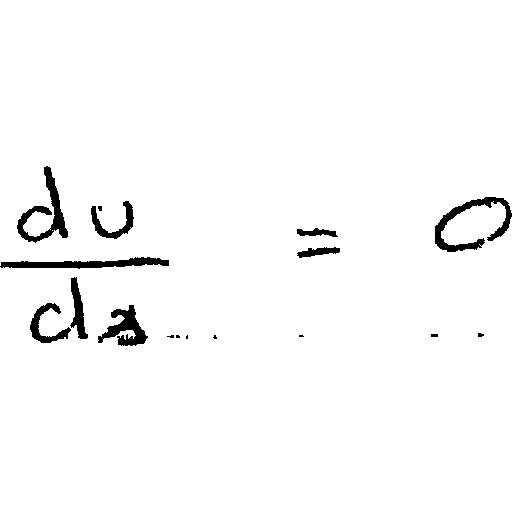 du/dx = 0